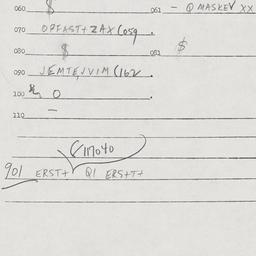 060 $ 061 - Q MASKEV XX
070 OPFAST+ZAX(059.
080 $ 081 $
090 JEMTEJVIM(162.
100 O
110 -
(17040
901 ERST+ Q1 ERS+T+